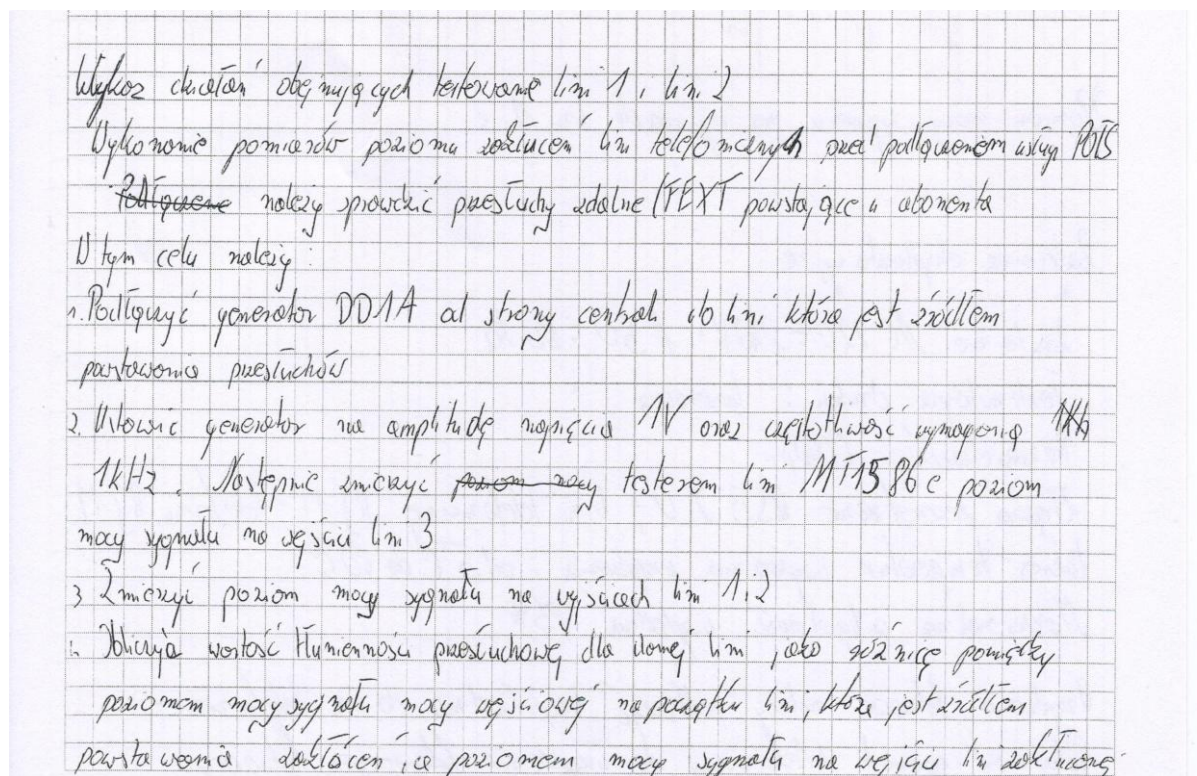 Wykaz działań obejmujących testowanie lini 1 i lini 2
Wykonanie pomiarów poziomu zakłuceń lini telefonicznych przed podłączeniem usługi POTS
Podłączene należy prowdzić przesłuchy zdalne (FEXT powstające u abonenta
W tym celu należy:
1. Podłączyć generator DD1A od strony centrali do lini która jest źródłem
powstawania przesłuchów
2. Ustawić generator na amplitudę napięcia 1V oraz częstotliwość wymaganą 1kHz
1kHz. Następnie zmierzyć poziom mocy testerem lini MT1586c poziom
mocy sygnału na wejściu lini 3
3 Zmierzyć poziom mocy sygnału na wyjściach lini 1 i 2
Obliczyć wartość tłumienności przesłuchowej dla danej lini jako różnicę pomiędzy
poziomem mocy sygnału mocy wejściowej na początku lini, która jest źródłem
powstawania zakłócen, a poziomem mocy sygnału na wejściu lini zakłuconej